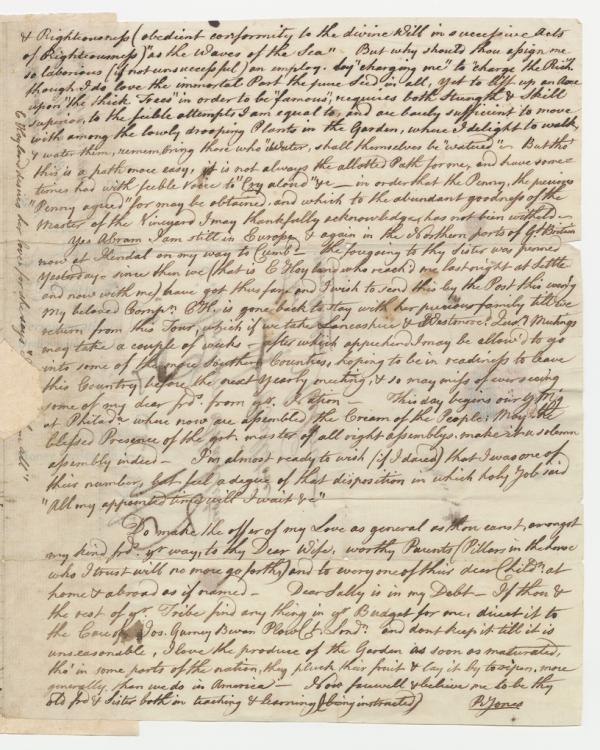 & Righteousness (obedient conformity to the divine Will in successive Acts
of Righteousness) "as the Waves of the Sea" But why should thou assign me
so laborious (if not unsuccessful) an employ. Say "charging me" to "charge the Rich
though I do love the immortal Part the pure Seed in all, yet to lift up an Axe
upon "the thick Trees" in order to be "famous", requires both Strength & Skill
superior, to the feeble attempts I am equal to, and are barely sufficient to move
with among the lowly drooping Plants in the Garden, where I delight to walk,
& water them, remembring those who "Water, shall themselves be "watered" – But tho'
this is a path more easy, it is not always the allotted Path for me, and have some=
times had with feeble Voice to "Cry aloud" &c – in order that the Penny, the precious
"Penny agreed" for may be obtained, and which to the abundant goodness of the
Master of the Vineyard I may thankfully acknowledge, has not been witheld –
Yes Abram I am still in Europe & again in the Northern ports of Gt. Britain
now at Kendal on my way to Cumbd – the foregoing to thy Sister was penned
Yesterday – since then we (that is E Hoyland who reach'd me last night at Settle
and now with me) have got thus far and I wish to send this by the Post this evening
My beloved Compn. CH. is gone back to stay with her precious family till we
return from this Tour, which if we take Lancashire & Westmord. Quy. Meetings
may take a couple of weeks – after which apprehend I may be allow'd to go
into some of the more Southern Counties, hoping to be in readiness to leave
this Country before the next Yearly meeting, & so may miss of ever seeing
some of my dear frds. from yr. – This day begins our Y Mg
at Philada. where now are assembled the Cream of the People; May the
blessed Presence of the grt. master of all right assemblys, make it a solemn
assembly indeed – I'm almost ready to wish (if I dared) that I was one of
their number, but feel a degree of that disposition in which holy Job said
"All my appointed time will I wait &c"
Do make the offer of my Love as general as thou canst, amongst
my kind frds. yr. way, to thy Dear Wife, worthy Parents (Pillars in the house
who I trust will no more go forth) and to everyone of their dear Childn. at
home & abroad as if named – Dear Sally is in my Debt – If thou &
the rest of yr. Tribe find any thing in yr. Budget for me, direct it to
the Care of Jos. Gurney Bevan Plow Ct. Londn. and dont keep it till it is
unseasonable, I love the produce of the Garden as soon as maturated,
tho' in some parts of the nation, they pluck their fruit & lay it by to ripen, more
generally, than we do in America – Now farewell & believe me to be thy
old frd & Sister both in teaching & learning (being instructed) R Jones
E Hoyland desires her love for she says
in all"